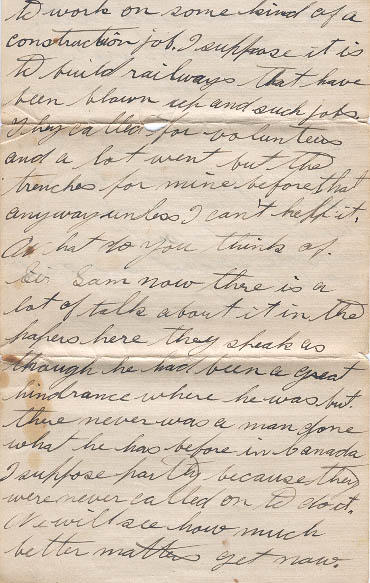 to work on some kind of a
construction job. I suppose it is
to build railways that have
been blown up and such jobs
They called for volunteers
and a lot went but the
trenches for mine before that
anyway unless I can't help it.
What do you think of
Sir Sam now there is a
lot of talk about it in the
papers here they speak as
though he had been a great
hindrance where he was but
there never was a man done
what he has before in Canada
I suppose partly because they
were never called on to do it.
We will see how much
better matters get now.